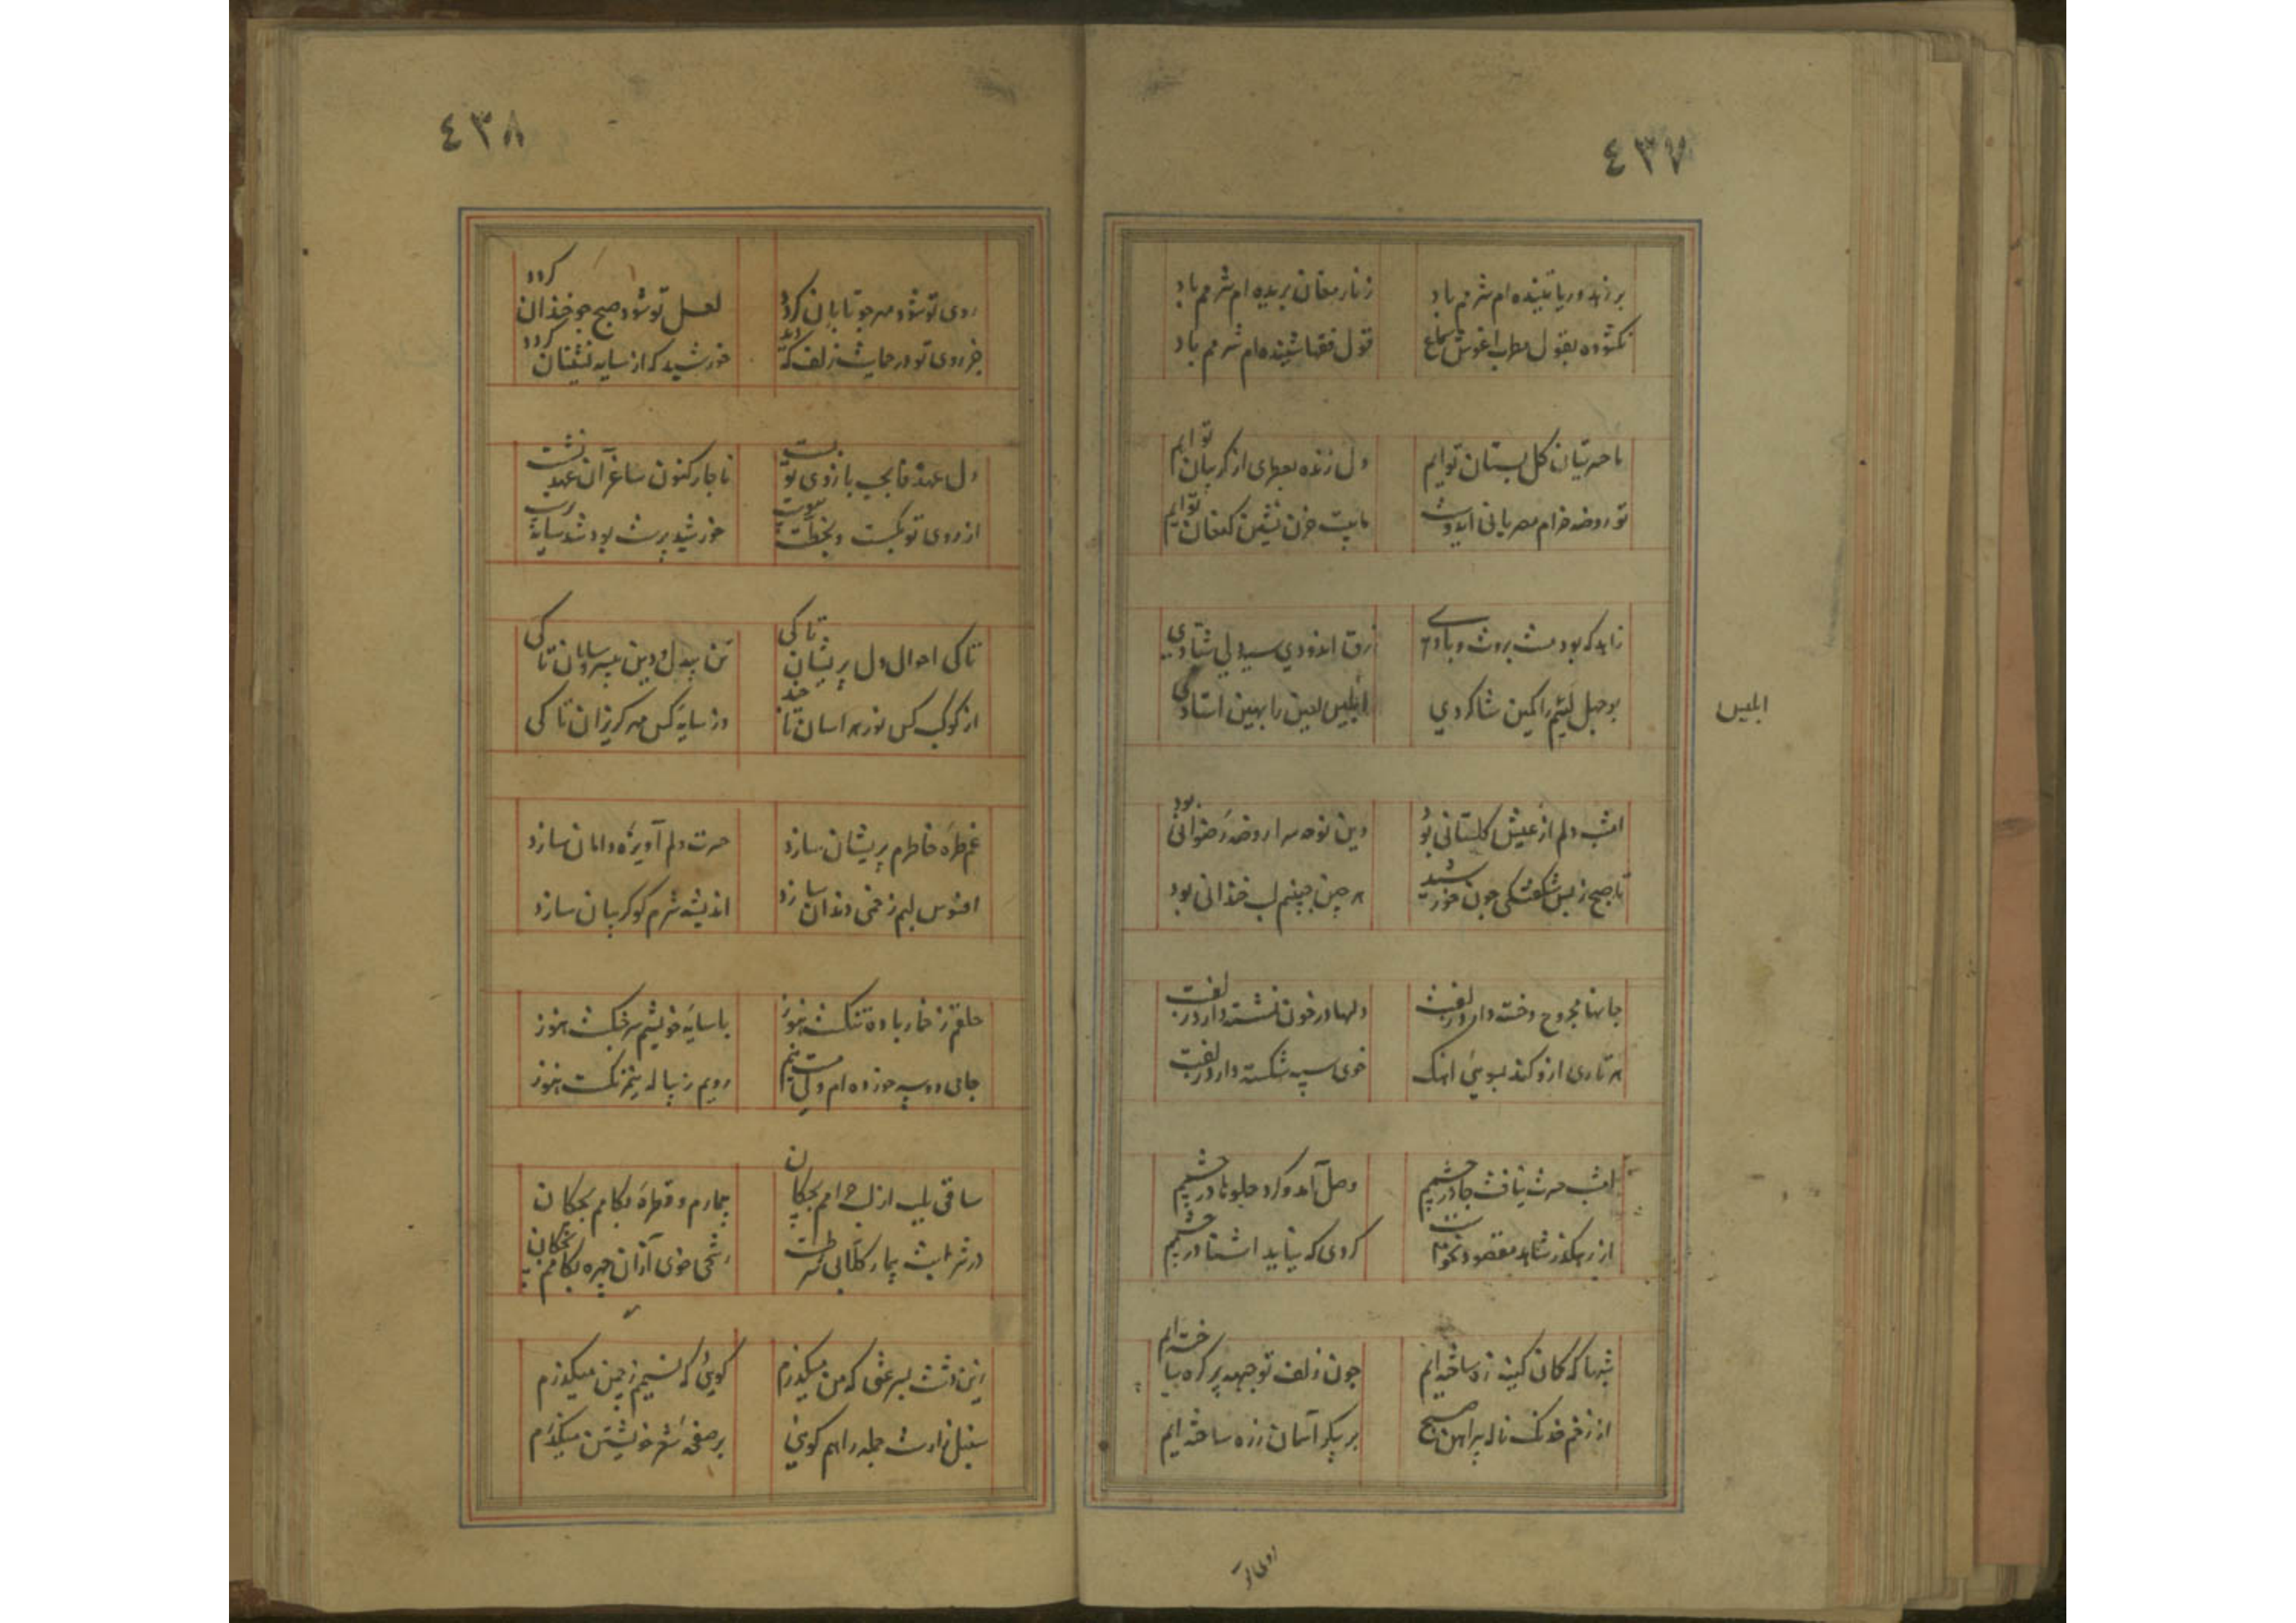 ٤٣٧
بر زهد و ریا تنیده ام شرمم باد
زنار مغان بریده ام شرمم باد
نکشوده بقول مطرب اغوش سماع
قول فقها شنیده ام شرمم باد
ما حسرتیان کل بستان توایم
دل زنده ببوهای از کریبان توایم
تو روضه خرام مصر یانی ایدوست
ما بیت حزن نشین کنعان توایم
زاهد که بود مست بروت و بادی
زرق اندودی سیه دلی شیادی
بوجهل لئیم را کمین شاکردی
ابلیس لعین را بهین استادی
ابلیس
امشب دلم از عیش کلستانی بود
وین نوحه سرا روضه رضوانی بود
تا صبح ز بس شکفتکی چون خورشید
هر چین جبینم لب خندانی بود
جانها مجروح و خسته دارد زلفت
دلها در خون نشسته دارد زلفت
هر تاری ازو کند بسوئی اهنک
خوی سپه شکسته دارد زلفت
امشب حسرت نیافت جا در چشمم
وصل آمد و کرد جلوها در چشمم
از رهکذر شاهد مقصود نخواست
کردی که نیاید اشنا در چشمم
شبها که کمان کینه زه ساخته ایم
چون زلف تو جبهه پر کره ساخته ایم
از زخم خدنک ناله پیراهن صبح
بر پیکر آسمان زره ساخته ایم
روی تو
٤٣٨
روی تو شود مهر چو تابان کردد
لعل تو شود صبح چو خندان کردد
جز روی تو در حمایت زلف که دید
خورشید که از سایه نشینان کردد
دل عهد فا بجب بازوی تو بست
ناچار کنون ساغر آن عهد شکست
از روی تو بکسست و بخطت پیوست
خورشید پرست بود شد سایه پرست
تا کی احوال دل پریشان تا کی
تن بیدل و دین بیسر و سامان تا کی
از کوکب کس نور هراسان تا چند
وز سایه کس مهر کریزان تا کی
غم طره خاطرم پریشان سازد
حسرت دلم آویزه دامان سازد
افسوس لبم زخمی دندان سازد
اندیشه شرم کو کریبان سازد
حلقم ز خمار باده تنکست هنوز
با سایه خویشم سر جنکست هنوز
جامی دو سه خورده ام ولی مست نیم
رویم ز پیاله نیم رنکست هنوز
ساقی بلب از لب جامم بچکان
بیمارم و قطرهٔ بکامم بچکان
در شرابت بیمار کلابی شرطست
رشحی خوی از آن چهره بکامم بچکان
زین دشت بسرعتی که من میکذرم
کوئی که نسیمم ز چمن میکذرم
سنبل زارست جمله راهم کوئی
بر صفحه شعر خویشتن میکذرم